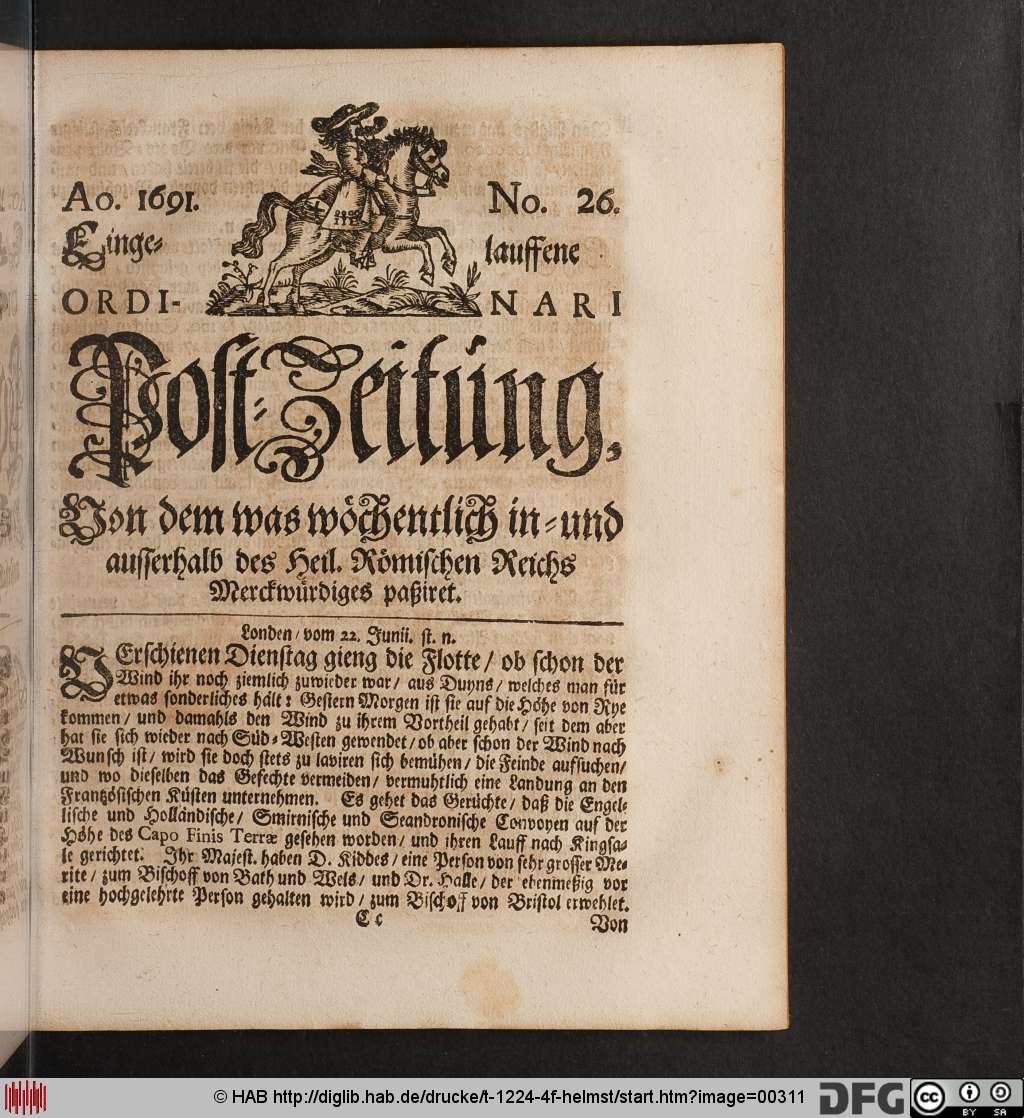 Ao. 1691. No. 26.
Einge= lauffene
ORDI- NARI
Post=Zeitung,
Von dem was wöchentlich in=und
ausserhalb des Heil. Römischen Reichs
Merckwürdiges paßiret.
Londen/ vom 22. Junii. st. n.
VErschienen Dienstag gieng die Flotte/ ob schon der
Wind ihr noch ziemlich zuwieder war/ aus Duyns/ welches man für
etwas sonderliches hält: Gestern Morgen ist sie auf die Höhe von Rye
kommen/ und damahls den Wind zu ihrem Vortheil gehabt/ seit dem aber
hat sie sich wieder nach Süd=Westen gewendet/ ob aber schon der Wind nach
Wunsch ist/ wird sie doch stets zu laviren sich bemühen/ die Feinde aufsuchen/
und wo dieselben das Gefechte vermeiden/ vermuhtlich eine Landung an den
Frantzösischen Küsten unternehmen. Es gehet das Gerüchte/ daß die Engel-
lische und Holländische/ Smirnische und Scandronische Convoyen auf der
Höhe des Capo Finis Terræ gesehen worden/ und ihren Lauff nach Kingsa-
le gerichtet. Ihr Majest. haben D. Kiddes/ eine Person von sehr grosser Me-
rite/ zum Bischoff von Bath und Wels/ und Dr. Halle/ der ebenmeßig vor
eine hochgelehrte Person gehalten wird/ zum Bischoff von Bristol erwehlet.
C c Von
© HAB http://diglib.hab.de/drucke/t-1224-4f-helmst/start.htm?image=00311
DFG
cc BY SA